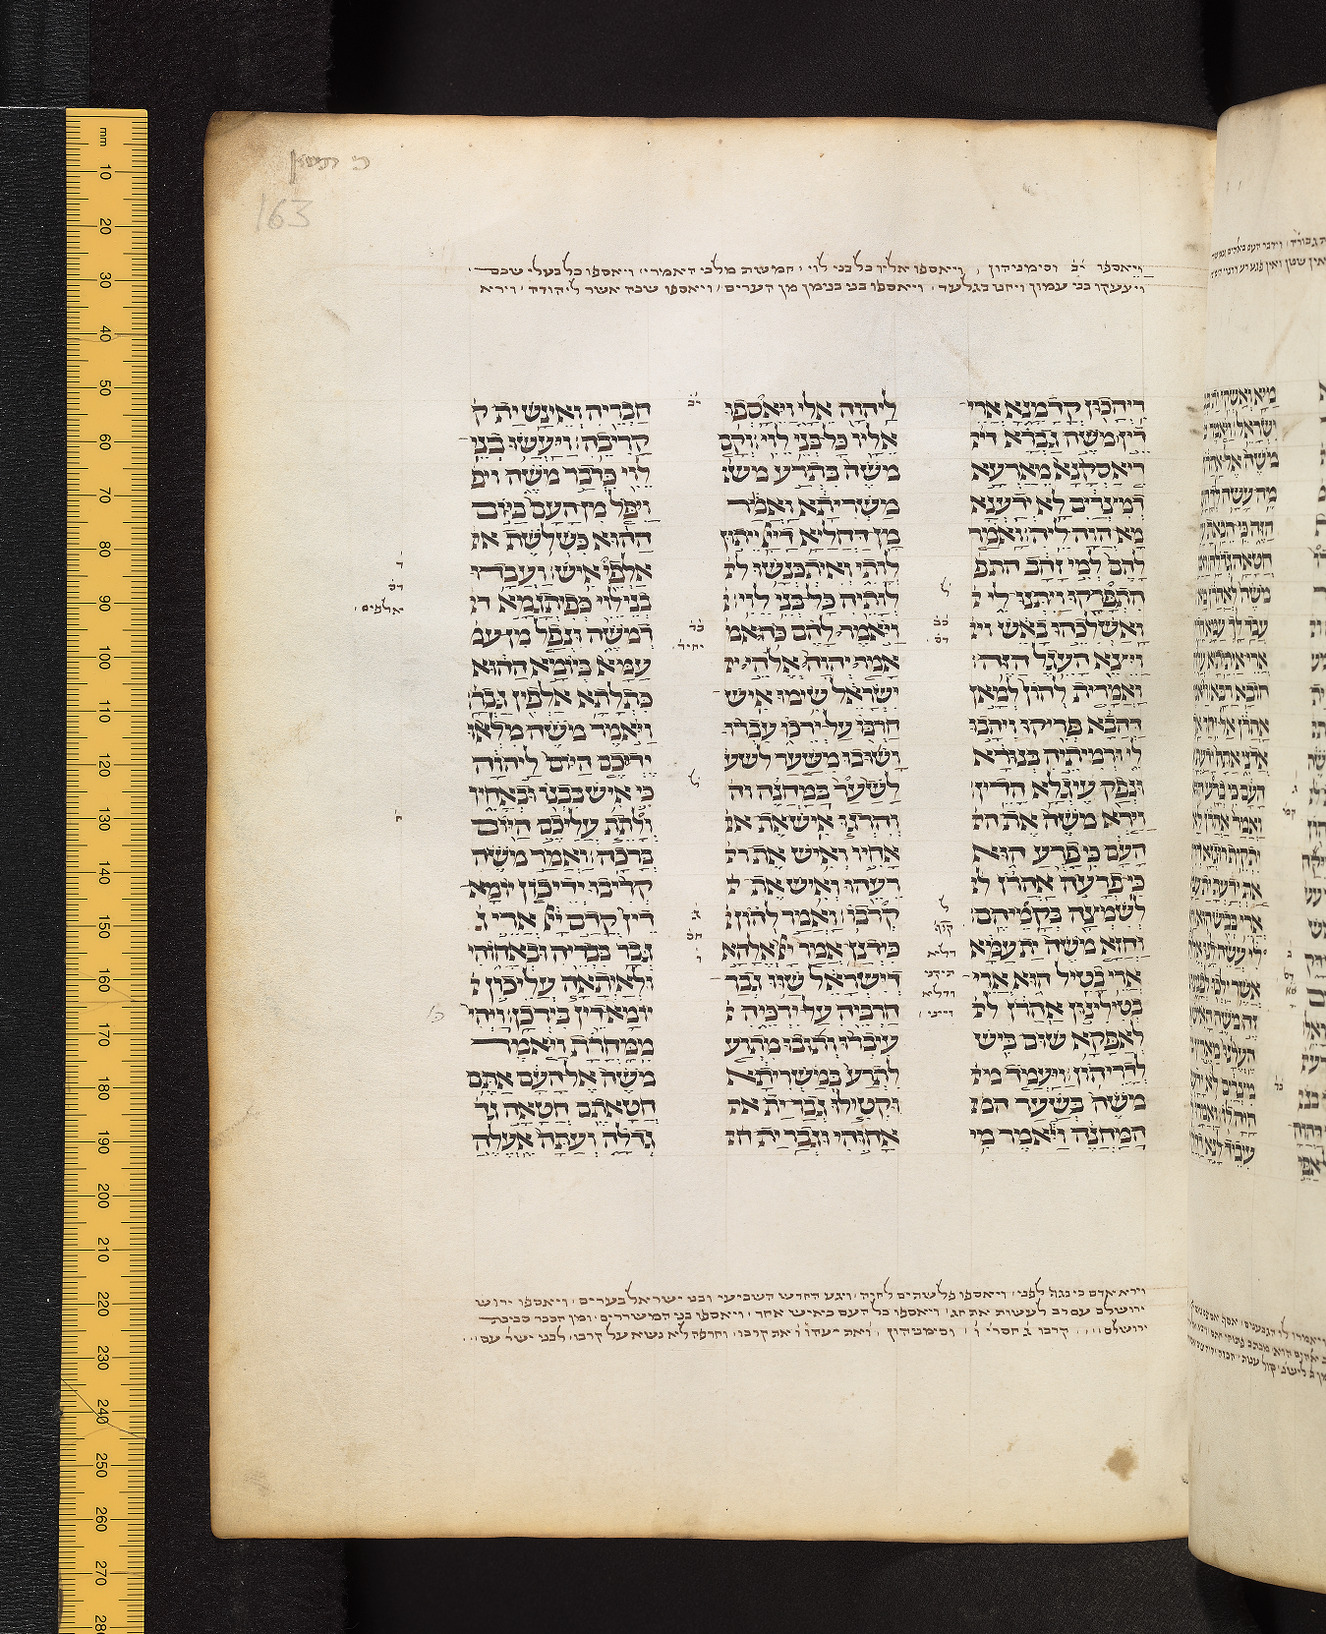 כי תשא
163
ויאספו יב וסימניהון ויאספו אליו כל בני לוי׳ חמשת מלכי האמרי׳ ויאספו כל בעלי שכם
ויצעקו בני עמון ויחנו בגלעד׳ ויאספו בני בנימן מן הערים׳ ויאספו שכה אשר ליהודה׳ וירא
דיהכון קדמנא ארי
דין משה גברא די
דיאסקנא מארעא
דמצרים לא ידענא
מא הוה ליה׃ ואמר
להם למי זהב התפ
התפרקו ויתנו לי ו
ואשלכהו באש ויי
ויצא העגל הזה׃
ואמרית להון למאן
דדהבא פריקו ויהבו
לי ורמיתיה בנורא
ונפק עיגלא הדין׃
וירא משה את הע
העם כי פרע הוא
כי פרעה אהרן ל
לשמצה בקמיהם׃
וחזא משה ית עמא
ארי בטיל הוא ארי
בטילינון אהרן ל
לאפקא שום ביש
לדריהון׃ ויעמד מש
משה בשער המח
המחנה ויאמר מי
ל
כב
דס
ל
ליהוה אלי ויאספו
אליו כל בני לוי׃ וקם
משה בתרע מש
משריתא ואמר
מן דדחליא דיי ייתון
לותי ואיתכנשו ל
לותיה כל בני לוי׃
ויאמר להם כה אמ
אמר יהוה אלהי י
ישראל שימו איש
חרבו על ירכו עברו
ושובו משער לשע
לשער במחנה וה
והרגו איש את א
אחיו ואיש את ר
רעהו ואיש את ק
קרבו׃ ואמר להון
כידנן אמר יי אלהא
דישראל שוו גבר
חרביה על ירכיה
עיברו ותובו מתרע
לתרע במשריתא
וקטולו גבר ית א
אחוהי וגבר ית ח
יב
כד
יחיד
ל
ג
חס
חבריה ואינש ית ק
קריביה׃ ויעשו בני
לוי כדבר משה ויפ
ויפל מן העם ביום
ההוא כשלשת א
אלפי איש׃ ועבדו
בני לוי כפיתגמא ד
דמשה ונפל מן עמ
עמא ביומא ההוא
כתלתא אלפין גברא
ויאמר משה מלאו
ידיכם היום ליהוה
כי איש בבנו ובאחיו
ולתת עליכם היום
ברכה׃ ואמר משה
קריבו ידיכון יומא
דין קדם יי ארי ג
גבר בבריה ובאחוהי
ולאיתאה עליכון
יומא דין בירכן׃ ויהי
ממחרת ויאמר
משה אל העם אתם
חטאתם חטאה גד
גדלה ועתה אעלה
ד
דס
אלפים
וירא אדם כי נגה לפני׳ ויאספו פלשתים לחיה׳ ויגע החדש השביעי ובני ישראל בערים׳ ויאספו ירוש
ירושלם עם רב לעשות את חג׳ ויאספו כל העם כאיש אחד׳ ויאספו בני המשררים׳ ומן הככר סביבת
ירושלם קרבו ג חסרי׳ וסימניהון ואת רעהו ואת קרבו׳ וחרפה לא נשא על קרבו׳ לבני ישר׳ עם